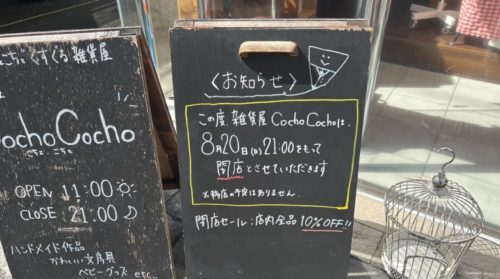 くすぐる雑貨屋
ochoCocho
OPEN 11:00
CLOSE 21:00
ハンドメイド作品
かわいい文房具
ベビーグッズ etc...
〈お知らせ〉
この度、雑貨屋CochoCochoは、
8月20日(日)21:00をもって
閉店とさせていただきます
※移店の予定はありません。
閉店セール:店内全品10%OFF!!